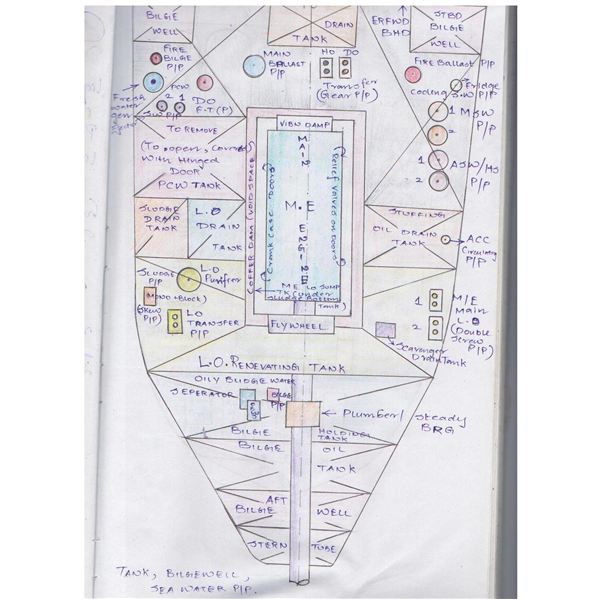 BILGIE
WELL
DRAIN
TANK
ERFWD
BHD
STBD
BILGIE
WELL
FIRE
BILGIE
P/P
MAIN
BALLAST
P/P
HO DO
Transfer
(Gear P/P)
FIRE Ballast P/P
Fridge
Cooling S.W P/P
Fresh
Water
PCW
2 1
SW P/P
DO
F.T (P)
1 MSW
P/P
2
1 ASW/HS
P/P
2
TO REMOVE
(To open, covered
with Hinged
DOOR
PCW TANK
VIBN DAMP
COFFER DAM (VOID SPACE)
Crank Case Doors
M.E
Relief Valves on Doors
SLUDGE
DRAIN
TANK
L.O
DRAIN
TANK
STUFFING
OIL DRAIN
TANK
ACC
Circulating
P/P
SLUDGE
P/P
L.O
Purifier
(MONO+Block)
(Skrw
P/P)
LO
TRANSFER
P/P
M E LO SUMP
TK (under
Sludge Bottom
Tank)
FLYWHEEL
1 M/E
Main
2 L.O
(Double
Screw
P/P)
Scavanger
Drain Tank
L.O. RENEVATING TANK
OILY BLIDGE WATER
SEPERATOR
BILGE
P/P
Plumber/ Steady
BRG
BILGIE HOLDING
TANK
BILGIE OIL
TANK
AFT
BILGIE WELL
STERN TUBE
TANK, BILGIEWELL,
SEA WATER P/P.